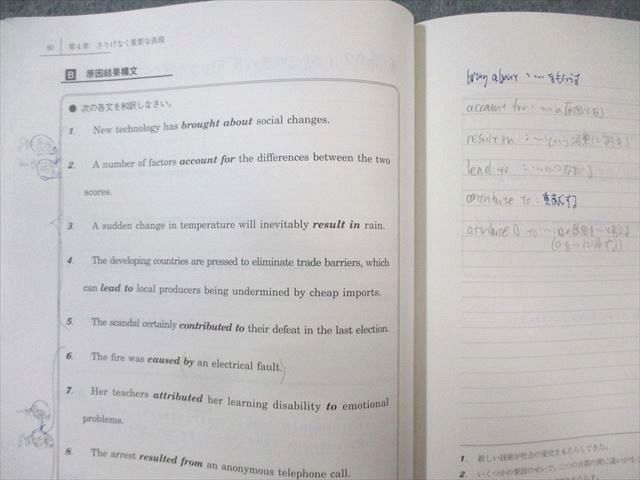 80 第4章 さりげなく重要な表現
B 原因結果構文
● 次の各文を和訳しなさい。
1. New technology has brought about social changes.
2. A number of factors account for the differences between the two
scores.
3. A sudden change in temperature will inevitably result in rain.
4. The developing countries are pressed to eliminate trade barriers, which
can lead to local producers being undermined by cheap imports.
5. The scandal certainly contributed to their defeat in the last election.
6. The fire was caused by an electrical fault.
7. Her teachers attributed her learning disability to emotional
problems.
8. The arrest resulted from an anonymous telephone call.
bring about : … をもたらす
account for : …の
result in : …という結果に
lead to : …
contribute to : 貢献する
attribute O to …
1. 新しい技術が社会の変化をもたらしてきた。
2. いくつかの要因のせいで、二つの点数の間に違いが